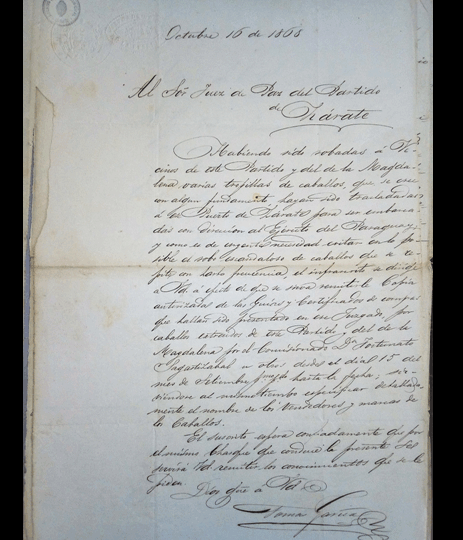 Octubre 16 de 1868
Al Sor Juez de Paz del Partido
de Zárate
Habiendo sido robadas á Ve-
cinos de este Partido y del de la Magda-
lena, varias tropillas de caballos, que se cree
con algun fundamento, hayan sido trasladadas
á ese Puerto de Zárate, para ser embarca-
das con direccion al Ejército del Paraguay
y como es de urgente necesidad evitar en lo po-
sible el robo escandaloso de caballos que se
con harta frecuencia, el infrascrito se dirige
á Vd á efecto de que se sirva remitir la Copia
autorizada de las Guias y Certificados de compra
que hallan sido presentados en ese Juzgado, por
caballos extraidos de este Partido y del de la
Magdalena por el Comisionado Dn Fortunato
u otros desde el dia 15 del
mes de Setiembre hasta la fecha, sir-
viendose al suministrarlos especificar detallada-
mente el nombre de los Vendedores y marcas de
los Caballos.
El suscrito espera confiadamente que por
el mismo Chasque que conduce la presente se
servirá Vd remitir los conocimientos que se le
piden.
Dios gue á Vd
Tomas Garcia